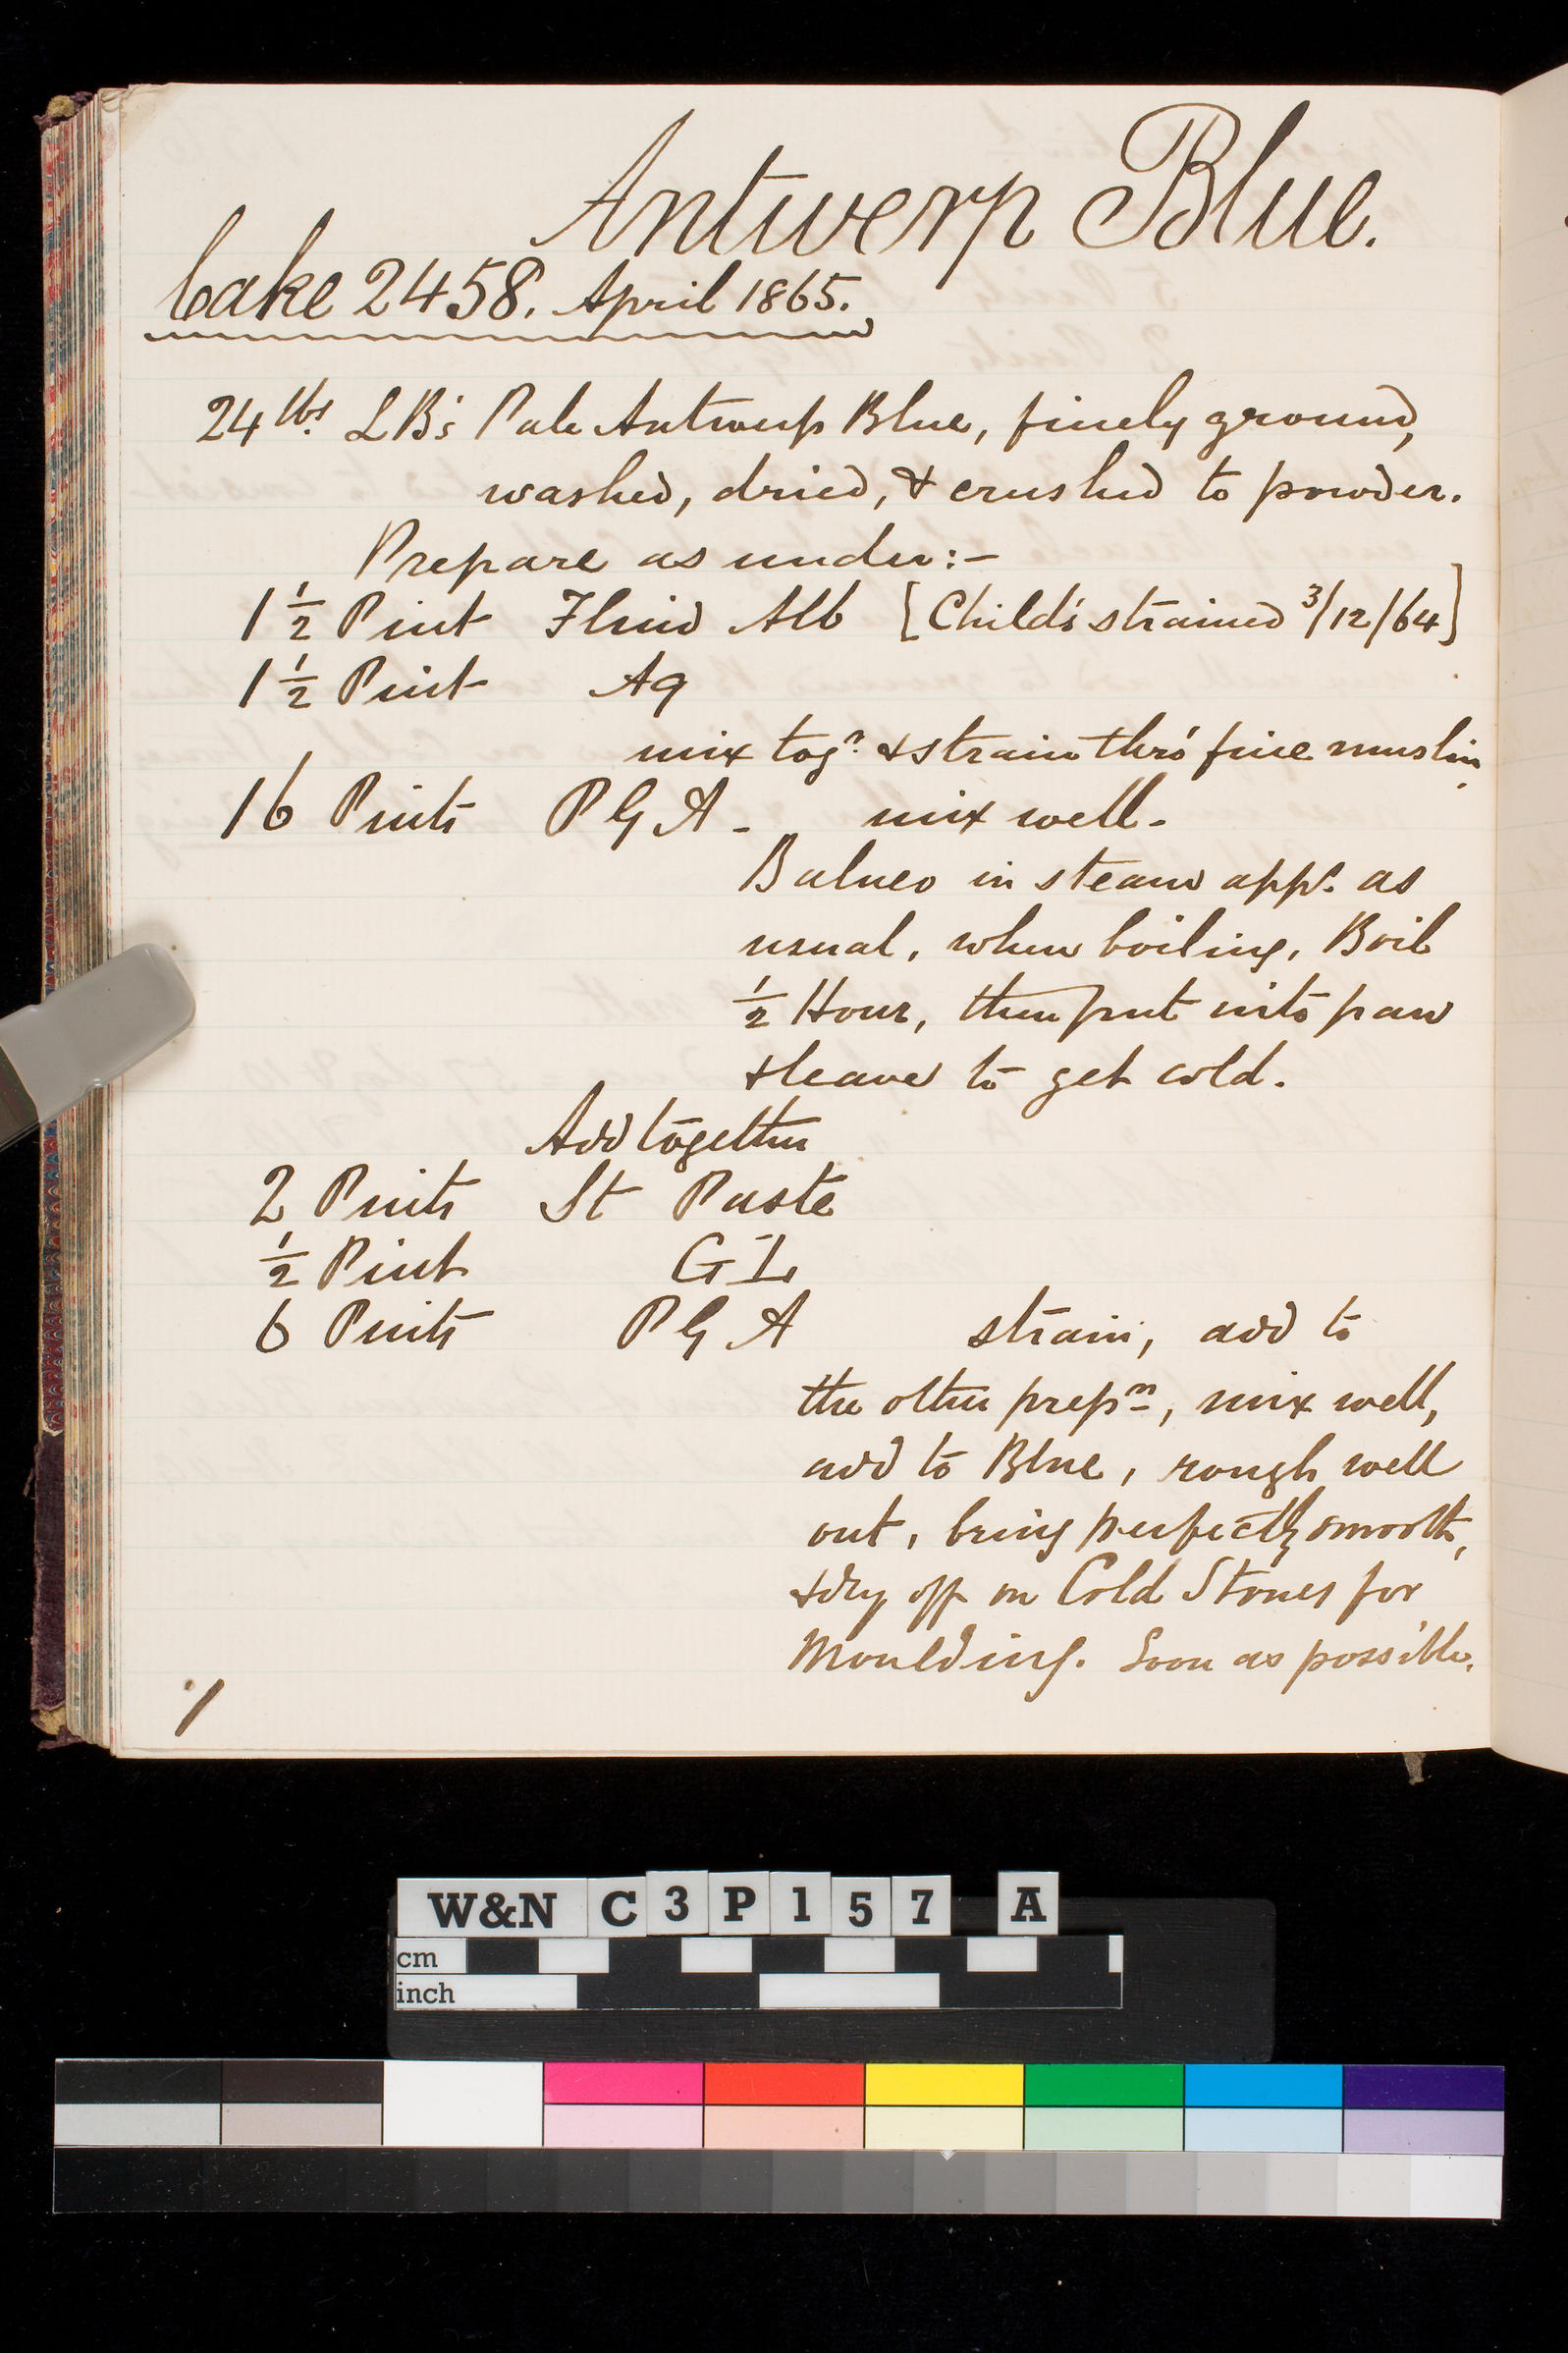 Antwerp Blue.
Cake 2458. April 1865.
24 lbs. LB's Pale Antwerp Blue, finely ground,
washed, dried, & crushed to powder.
Prepare as under:-
1 1/2 Pint Fluid Alb [Child's strained 3/12/64]
1 1/2 Pint Aq
mix togr. & strain thro' fine muslin.
16 Pints P G A - mix well -
Balneo in steam apps. as
usual, when boiling, Boil
1/2 Hour, then put into pan
& leave to get cold.
Add together
2 Pints St Paste
1/2 Pint G L
6 Pints P G A strain, add to
the other prepn, mix well,
add to Blue, rough well
out, bring perfectly smooth,
& dry off on Cold Stones for
Moulding. Soon as possible.
W&N C3P157 A
cm
inch